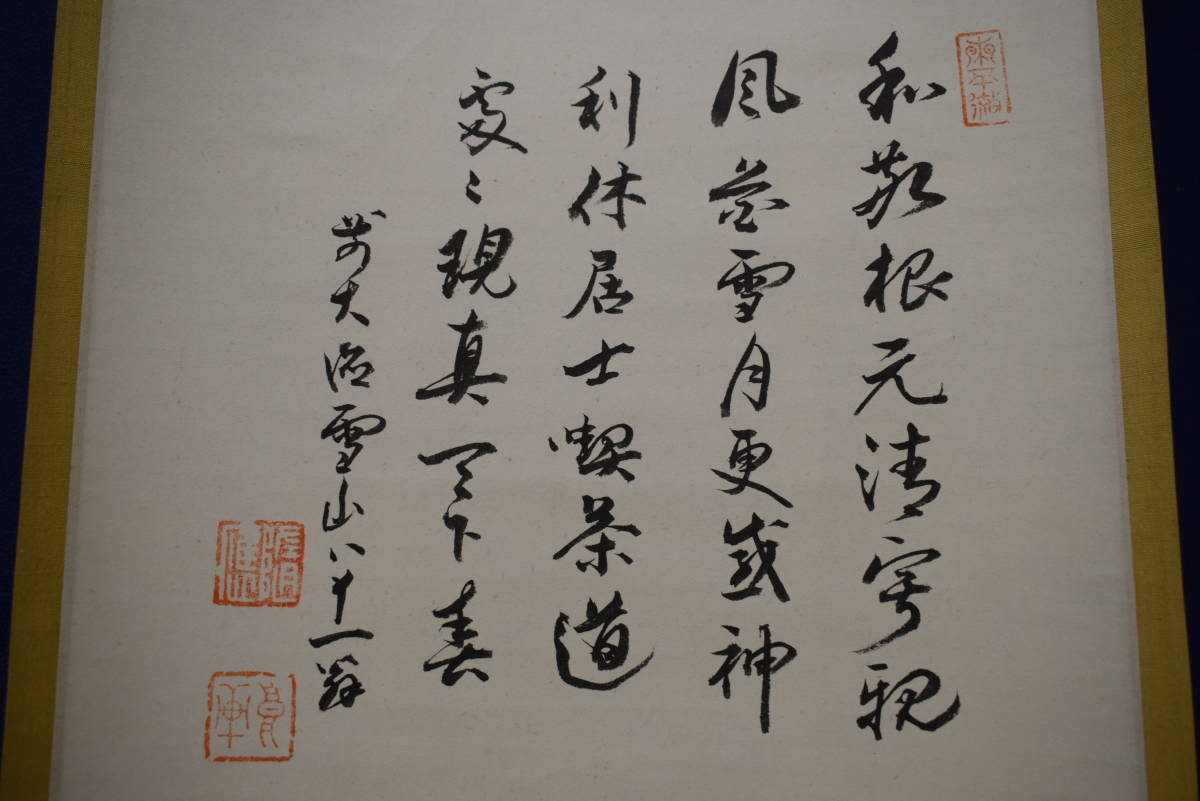 和敬根元清寂親
風花雪月更感神
利休居士喫茶道
處々現真天下春
前大徳雪山八十一翁